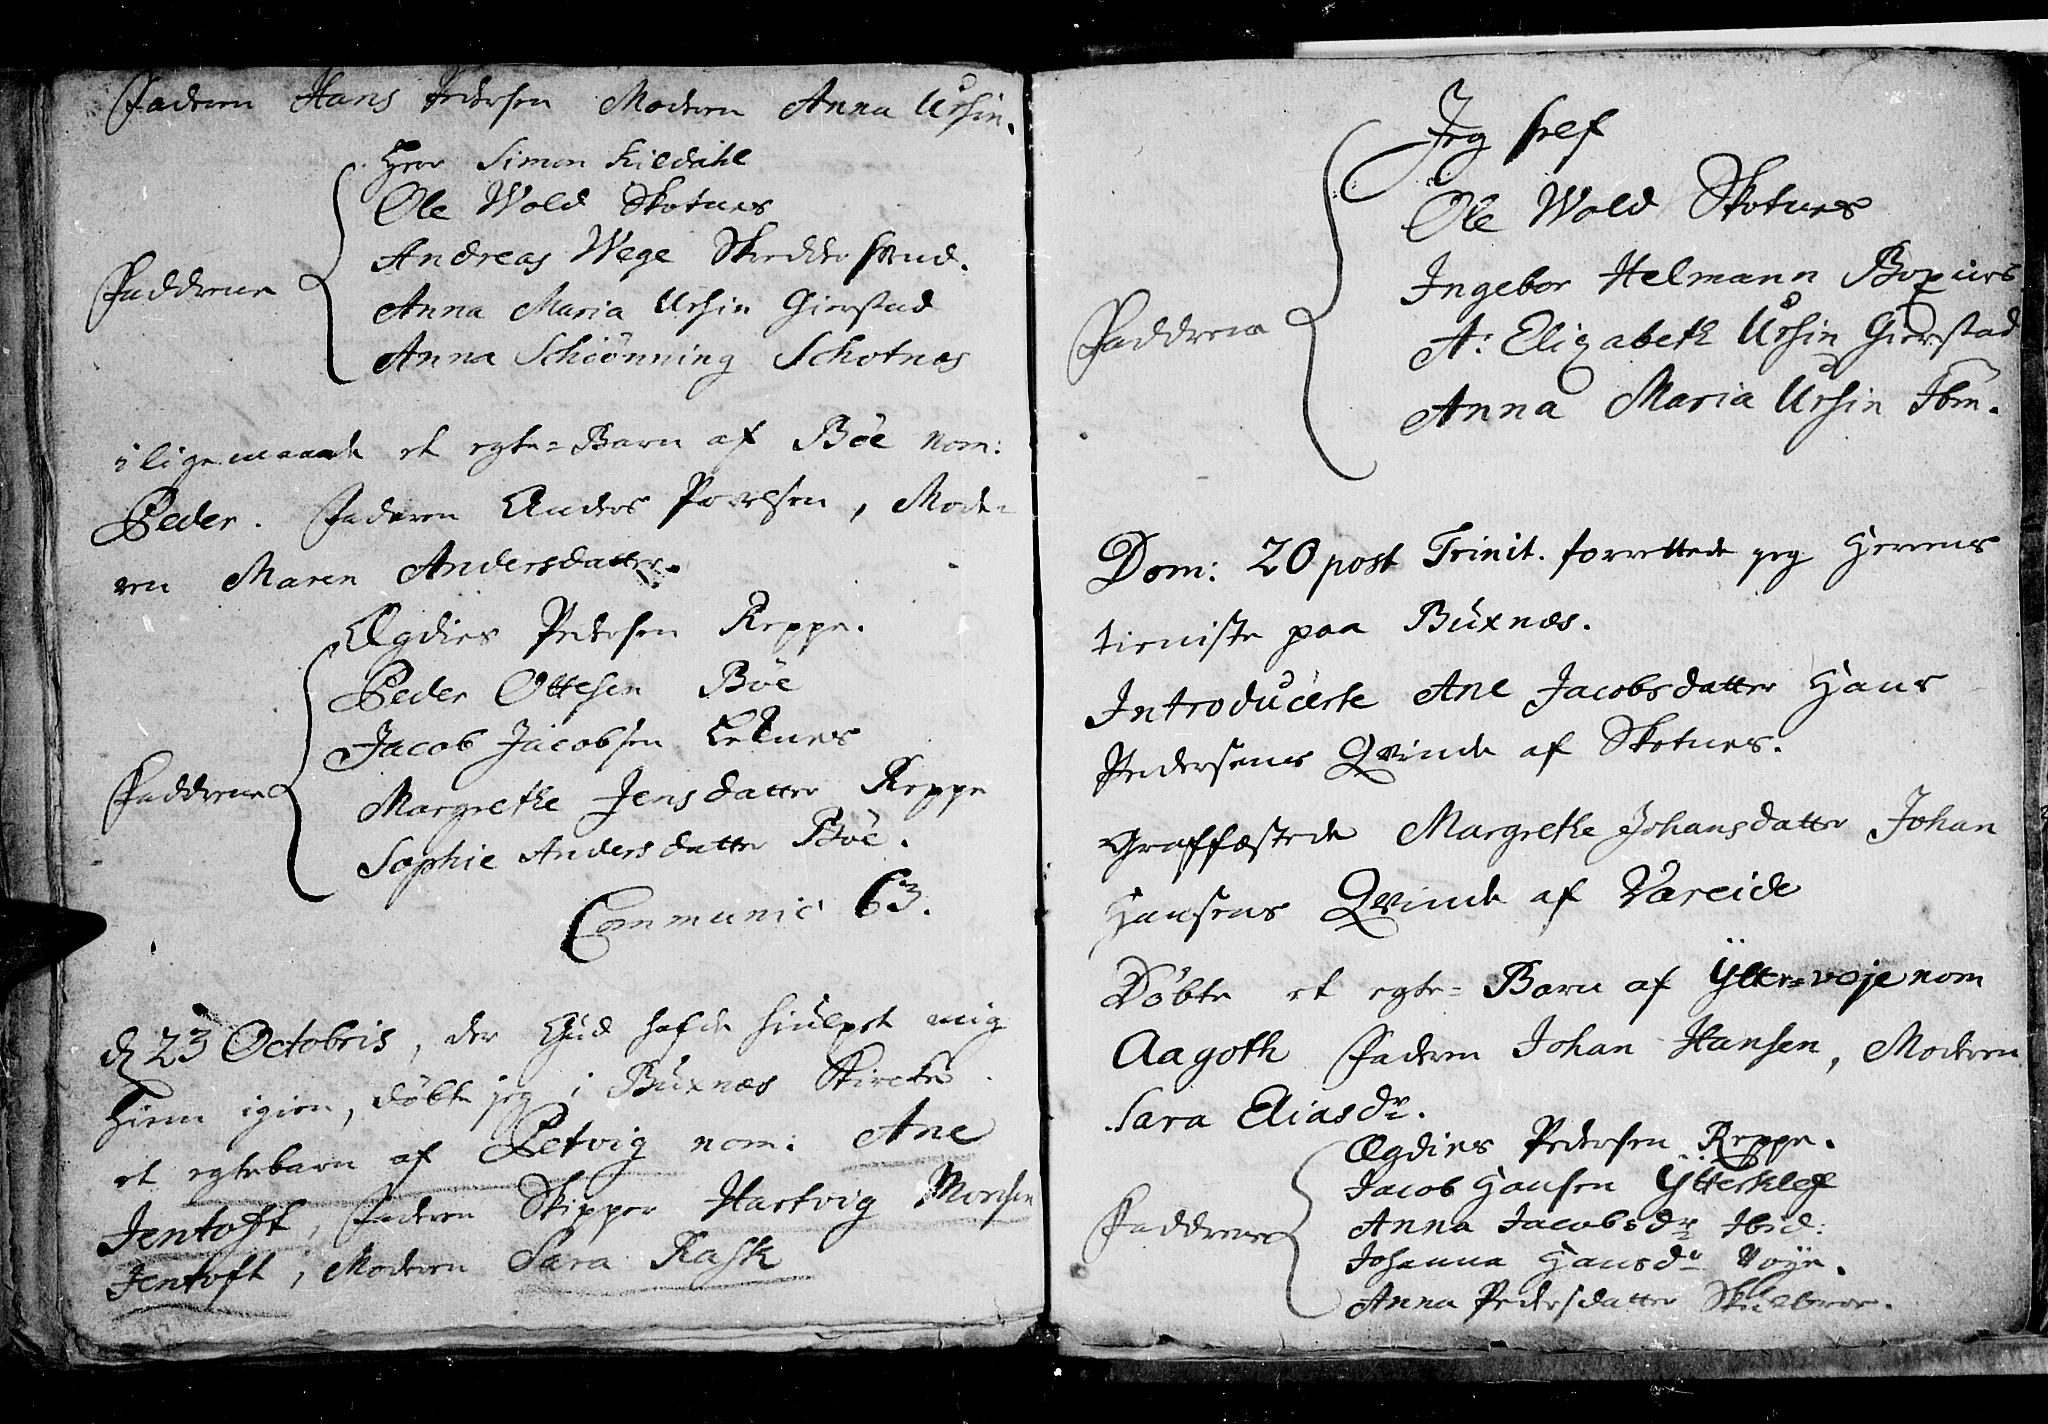 Faderen Hans Pedersen Moderen Anna Ursin.
Faddrene
Herr Simon Kildahl
Ole Wold Skotnes
Andreas Wege Skredder svend.
Anna Maria Ursin Gierstad
Anna Schiönning Schotnæs
i ligemaade et egte-Barn af Böe nom:
Peder. Faderen Anders Povelsen, Mode-
ren Maren Andersdatter.
Faddrene
Ægdies Pedersen Reppe.
Peder Ottesen Böe
Jacob Jacobsen Leknes
Margrethe Jensdatter Reppe
Sophie Andersdatter Böe.
Communic 63.
d 23 Octobris, der Gud hafde hiulpet mig
hiem igien, döbte jeg i Buxnæs Kircke
et egtebarn af Petvig nom: Ane
Jentoft, Faderen Skipper Hartvig Monsen
Jentoft, Moderen Sara Rask
Faddrene
Jeg self
Ole Wold Skotnes
Ingebor Helmann Buxnes
A: Elizabeth Ursin Gierstad
Anna Maria Ursin Ibm.
Dom: 20 post Trinit. forrettede jeg Herrens
tieniste paa Buxnæs.
Introducerte Ane Jacobsdatter Hans
Pedersens Qvinde af Skotnes.
Graffæstede Margrethe Johansdatter Johan
Hansens Qvinde af Vareide
Döbte et egte-Barn af Ytter-voje nom
Aagoth Faderen Johan Hansen, Moderen
Sara Eliasdr.
Faddrene
Ægdies Pedersen Reppe.
Jacob Hansen Ytterklef
Anna Jacobsdr Ibid:
Johanna Hansdr Voje.
Anna Pedersdatter